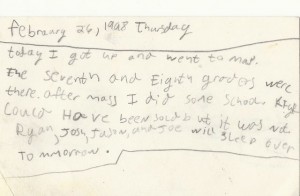 february 26, 1998 Thursday
today I got up and went to mas.
the seventh and Eighth graders were
there. after mass I did some school
Could Have been sold but it was not
Ryan, Josh, Jason, and Joe will sleep over
Tommorow.